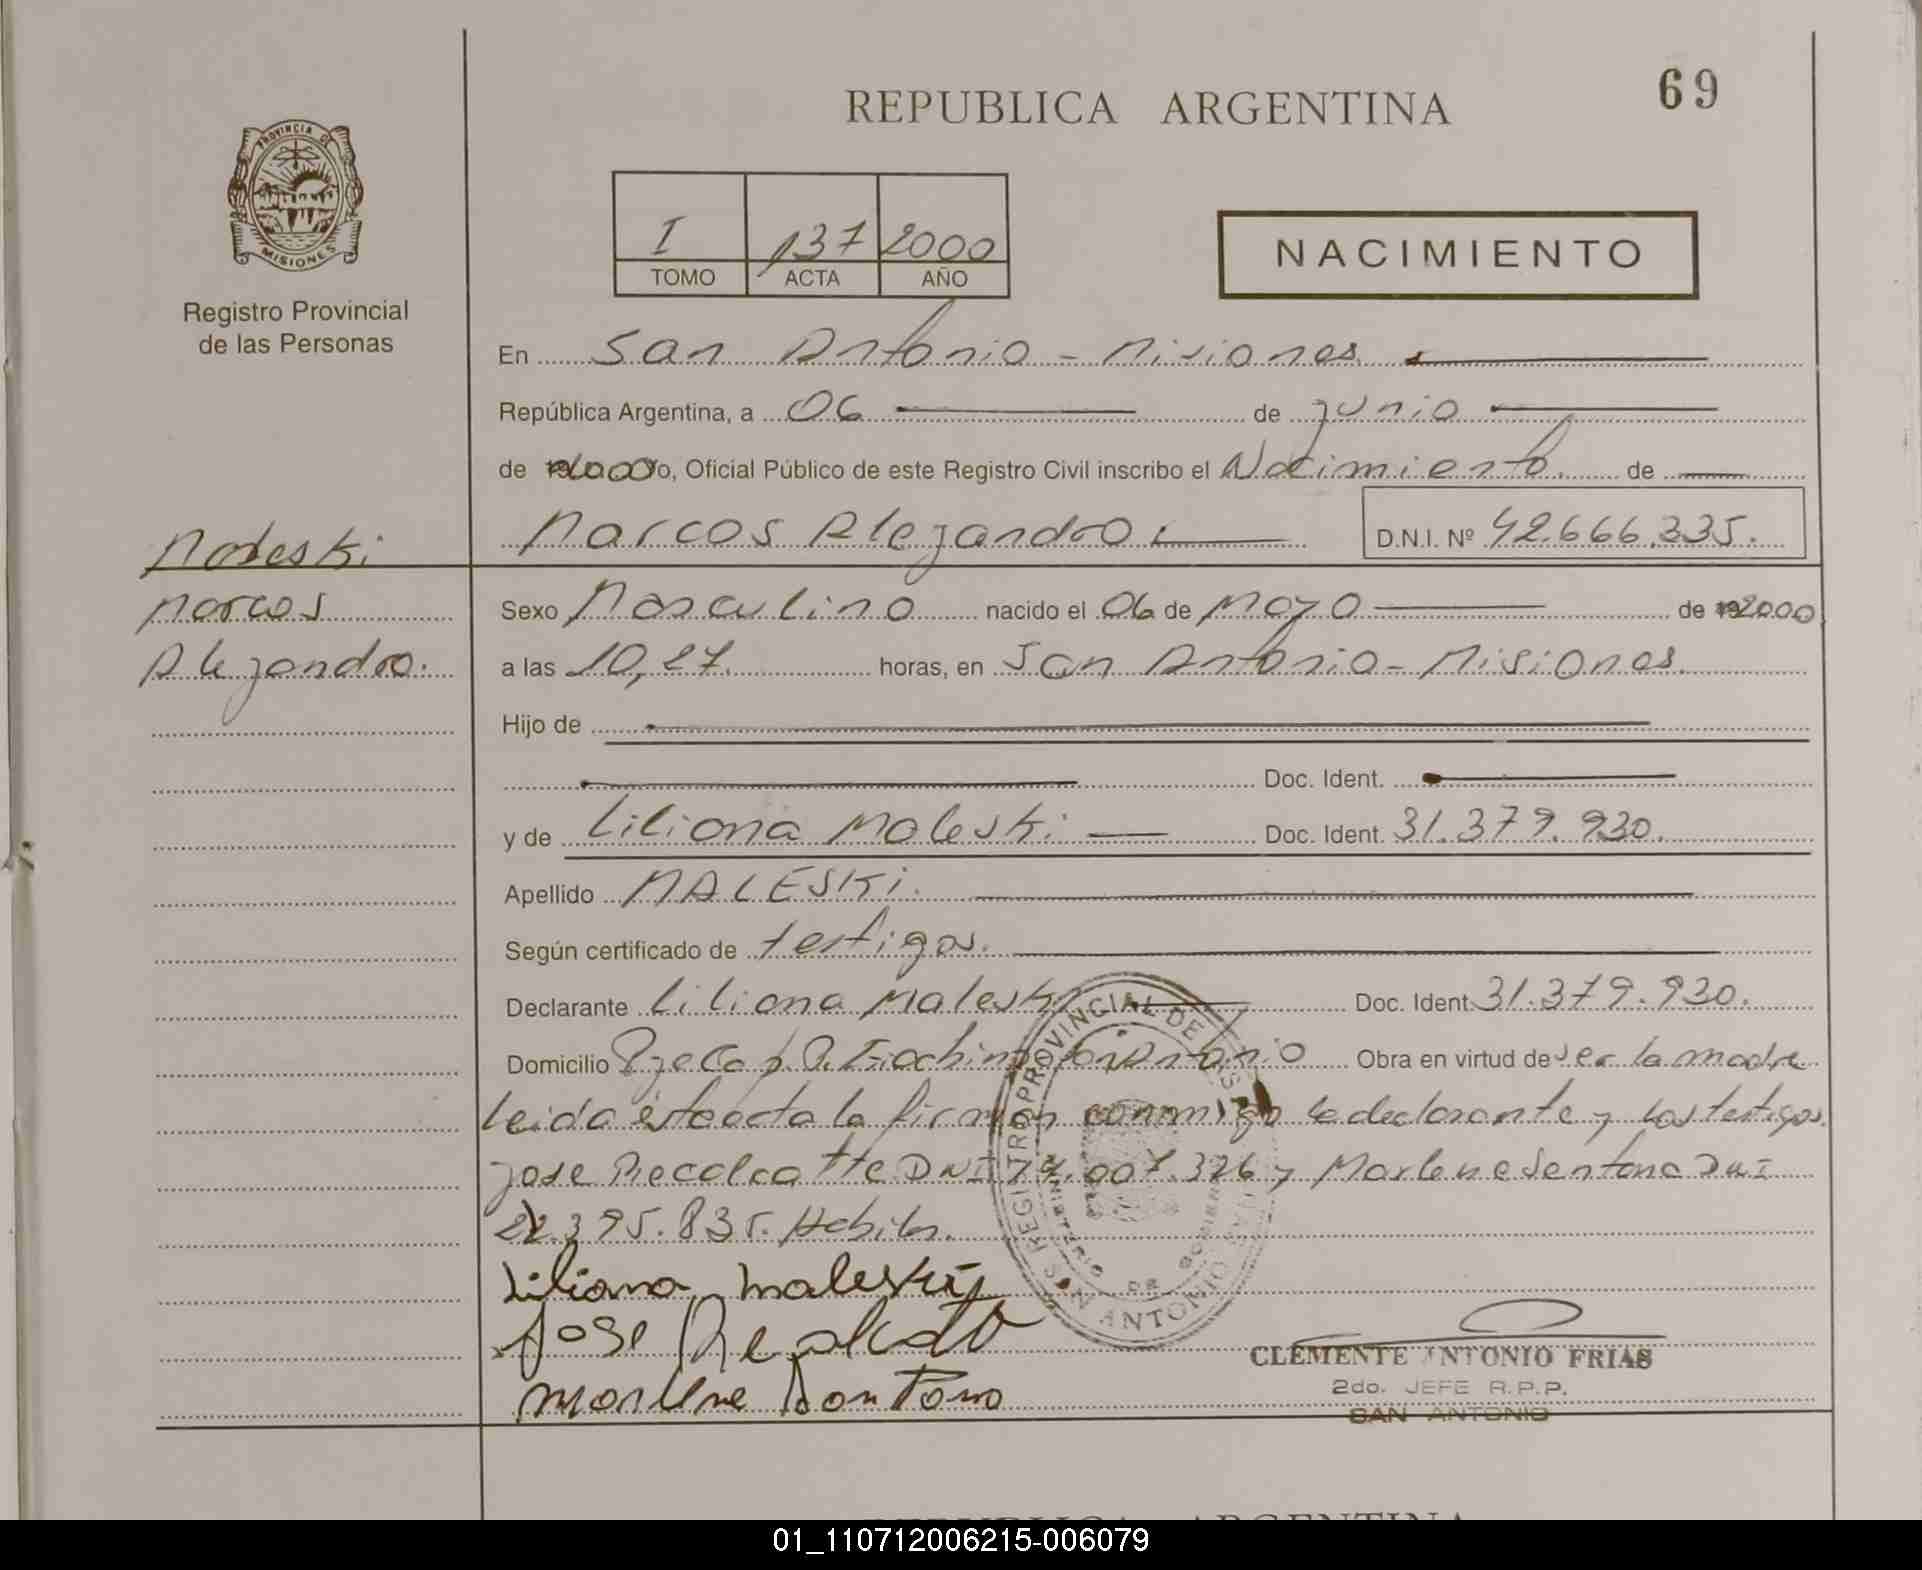 69
REPUBLICA ARGENTINA
PROVINCIA DE
MISIONES
Registro Provincial
de las Personas
I 137 2000
TOMO ACTA AÑO
NACIMIENTO
En San Antonio - Misiones
República Argentina, a 06 de junio
de 2000 yo, Oficial Público de este Registro Civil inscribo el Nacimiento. de
Marcos Alejandro D.N.I. Nº 42.666.335.
Maleski
Marcos
Alejandro.
Sexo Masculino nacido el 06 de Mayo de 2000
a las 10,27. horas, en San Antonio - Misiones.
Hijo de
Doc. Ident.
y de Liliana Maleski Doc. Ident. 31.379.930.
Apellido MALESKi.
Según certificado de testigos.
Declarante Liliana Maleski Doc. Ident. 31.379.930.
Domicilio San Antonio Obra en virtud de ser la madre
Leida ésta acta la firman conmigo la declarante y los testigos
Jose DNI y Marlene DNI
395.835. Habiles.
Liliana maleski
Jose
Marlene
REGISTRO PROVINCIAL DE LAS
MINISTERIO DE GOBIERNO
SAN ANTONIO
CLEMENTE ANTONIO FRIAS
2do. JEFE R.P.P.
SAN ANTONIO
REPUBLICA ARGENTINA
01_110712006215-006079